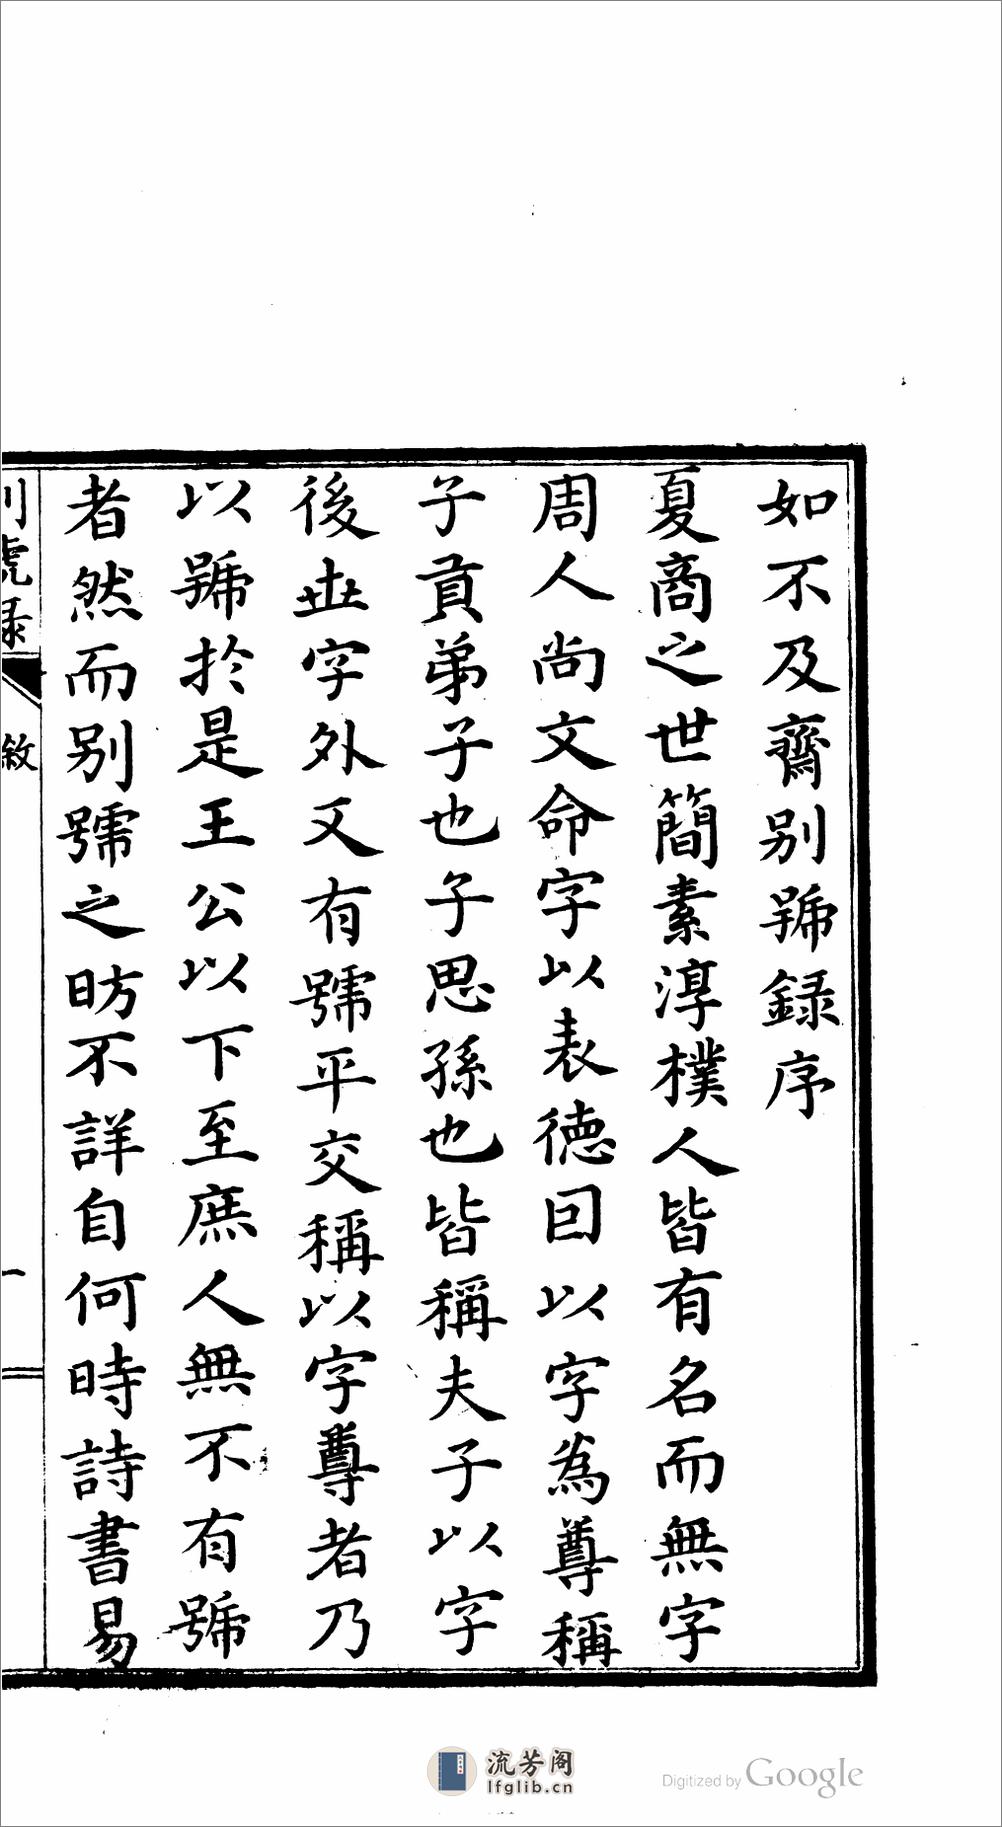 如不及齋别號錄序
夏商之世簡素淳樸人皆有名而無字
周人尚文命字以表德囙以字為尊稱
子貢弟子也子思孫也皆稱夫子以字
後世字外又有號平交稱以字尊者乃
以號於是王公以下至庶人無不有號
者然而别號之昉不詳自何時詩書易
别號录
敘
一
流芳阁
lfglib.cn
Digitized by Google